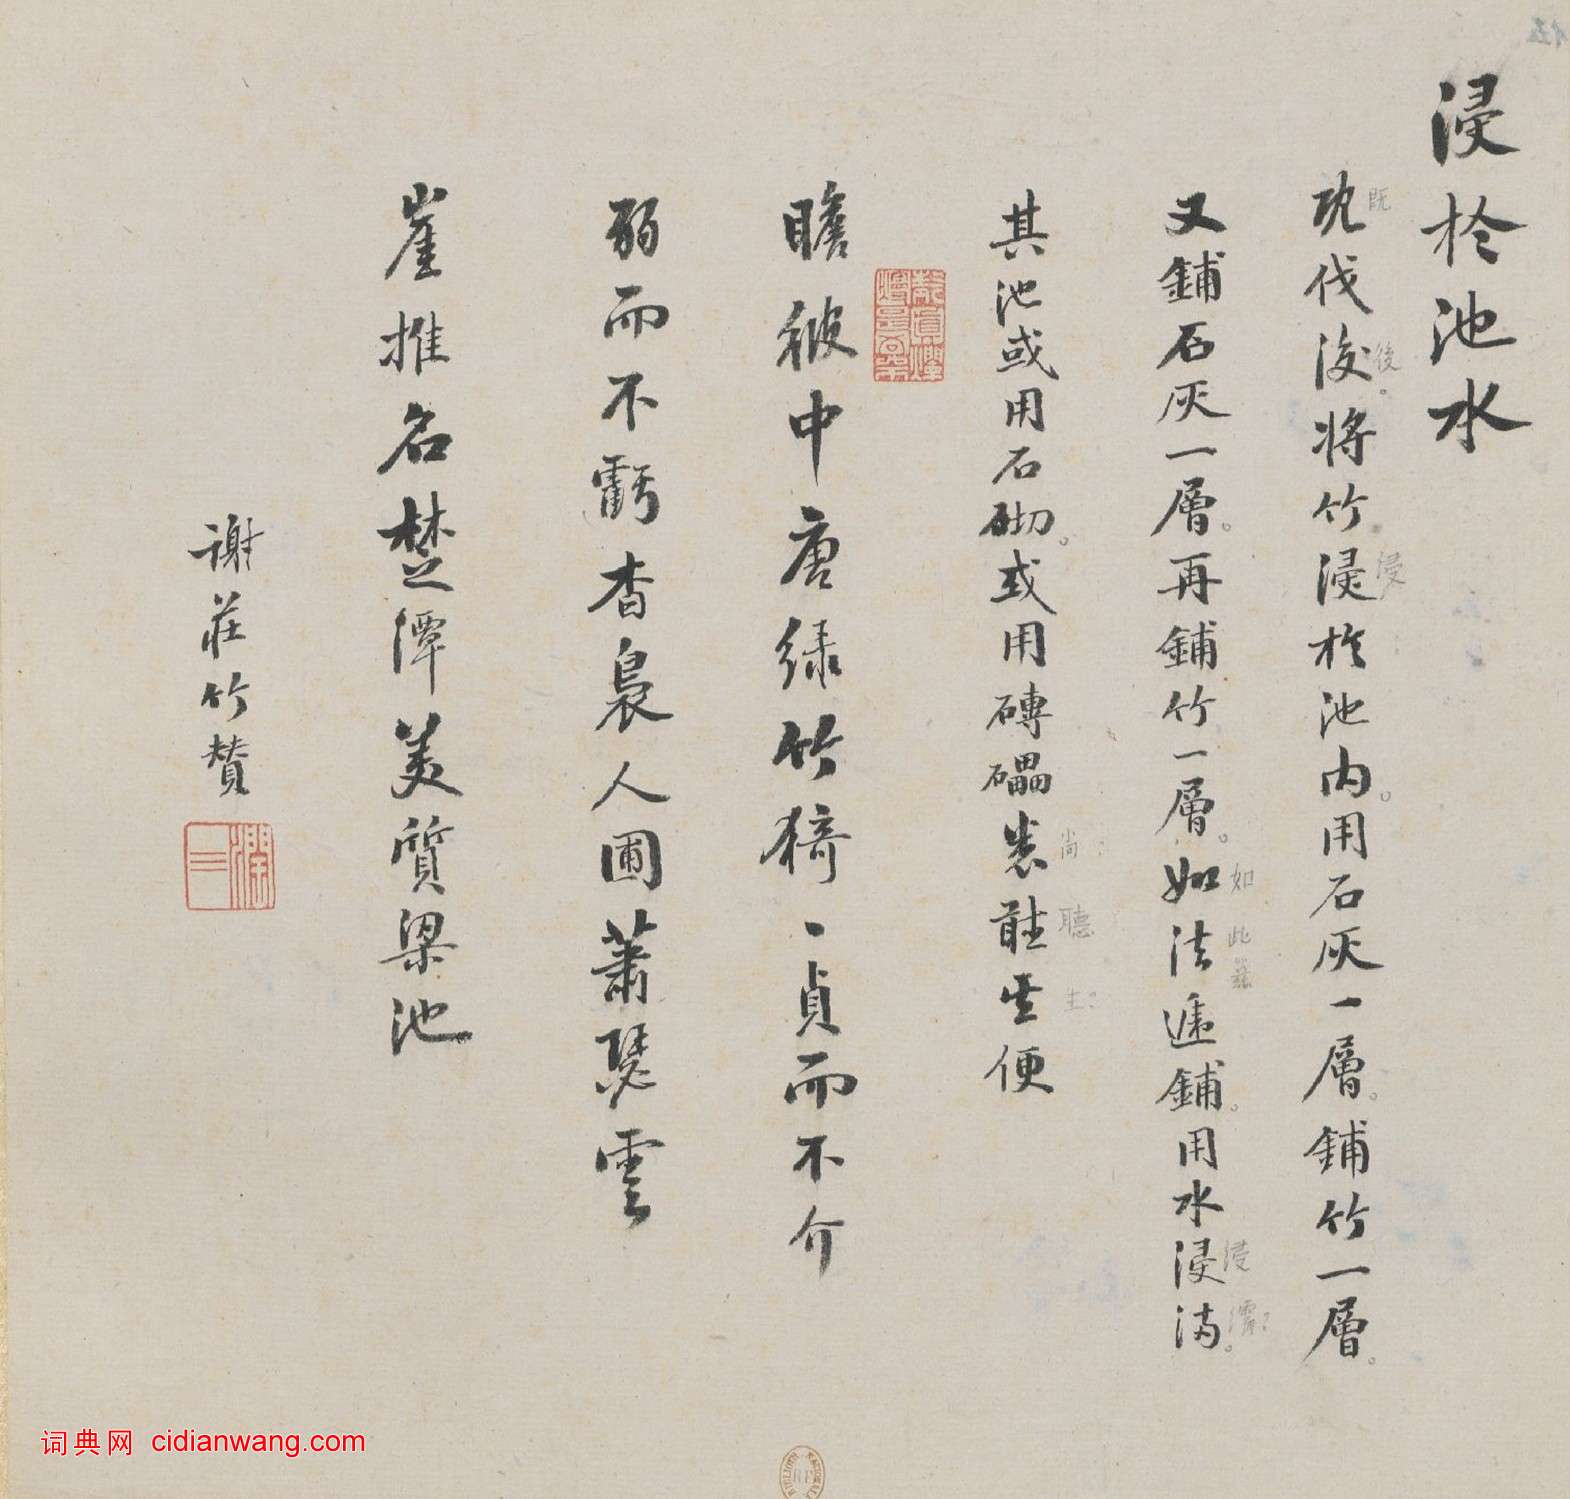 浸於池水
既伐後将竹浸於池内。用石灰一層。鋪竹一層。
又鋪石灰一層。再鋪竹一層。如法遞鋪。用水浸满。
其池或用石砌。或用磚礧悉聽其便
瞻彼中唐绿竹猗〻貞而不介
弱而不虧杳裊人圃蕭瑟雲
崖推名楚潭美質梁池
謝莊竹贊
既
後
浸
如
此
浸
尚
聽
生
词典网 cidianwang.com